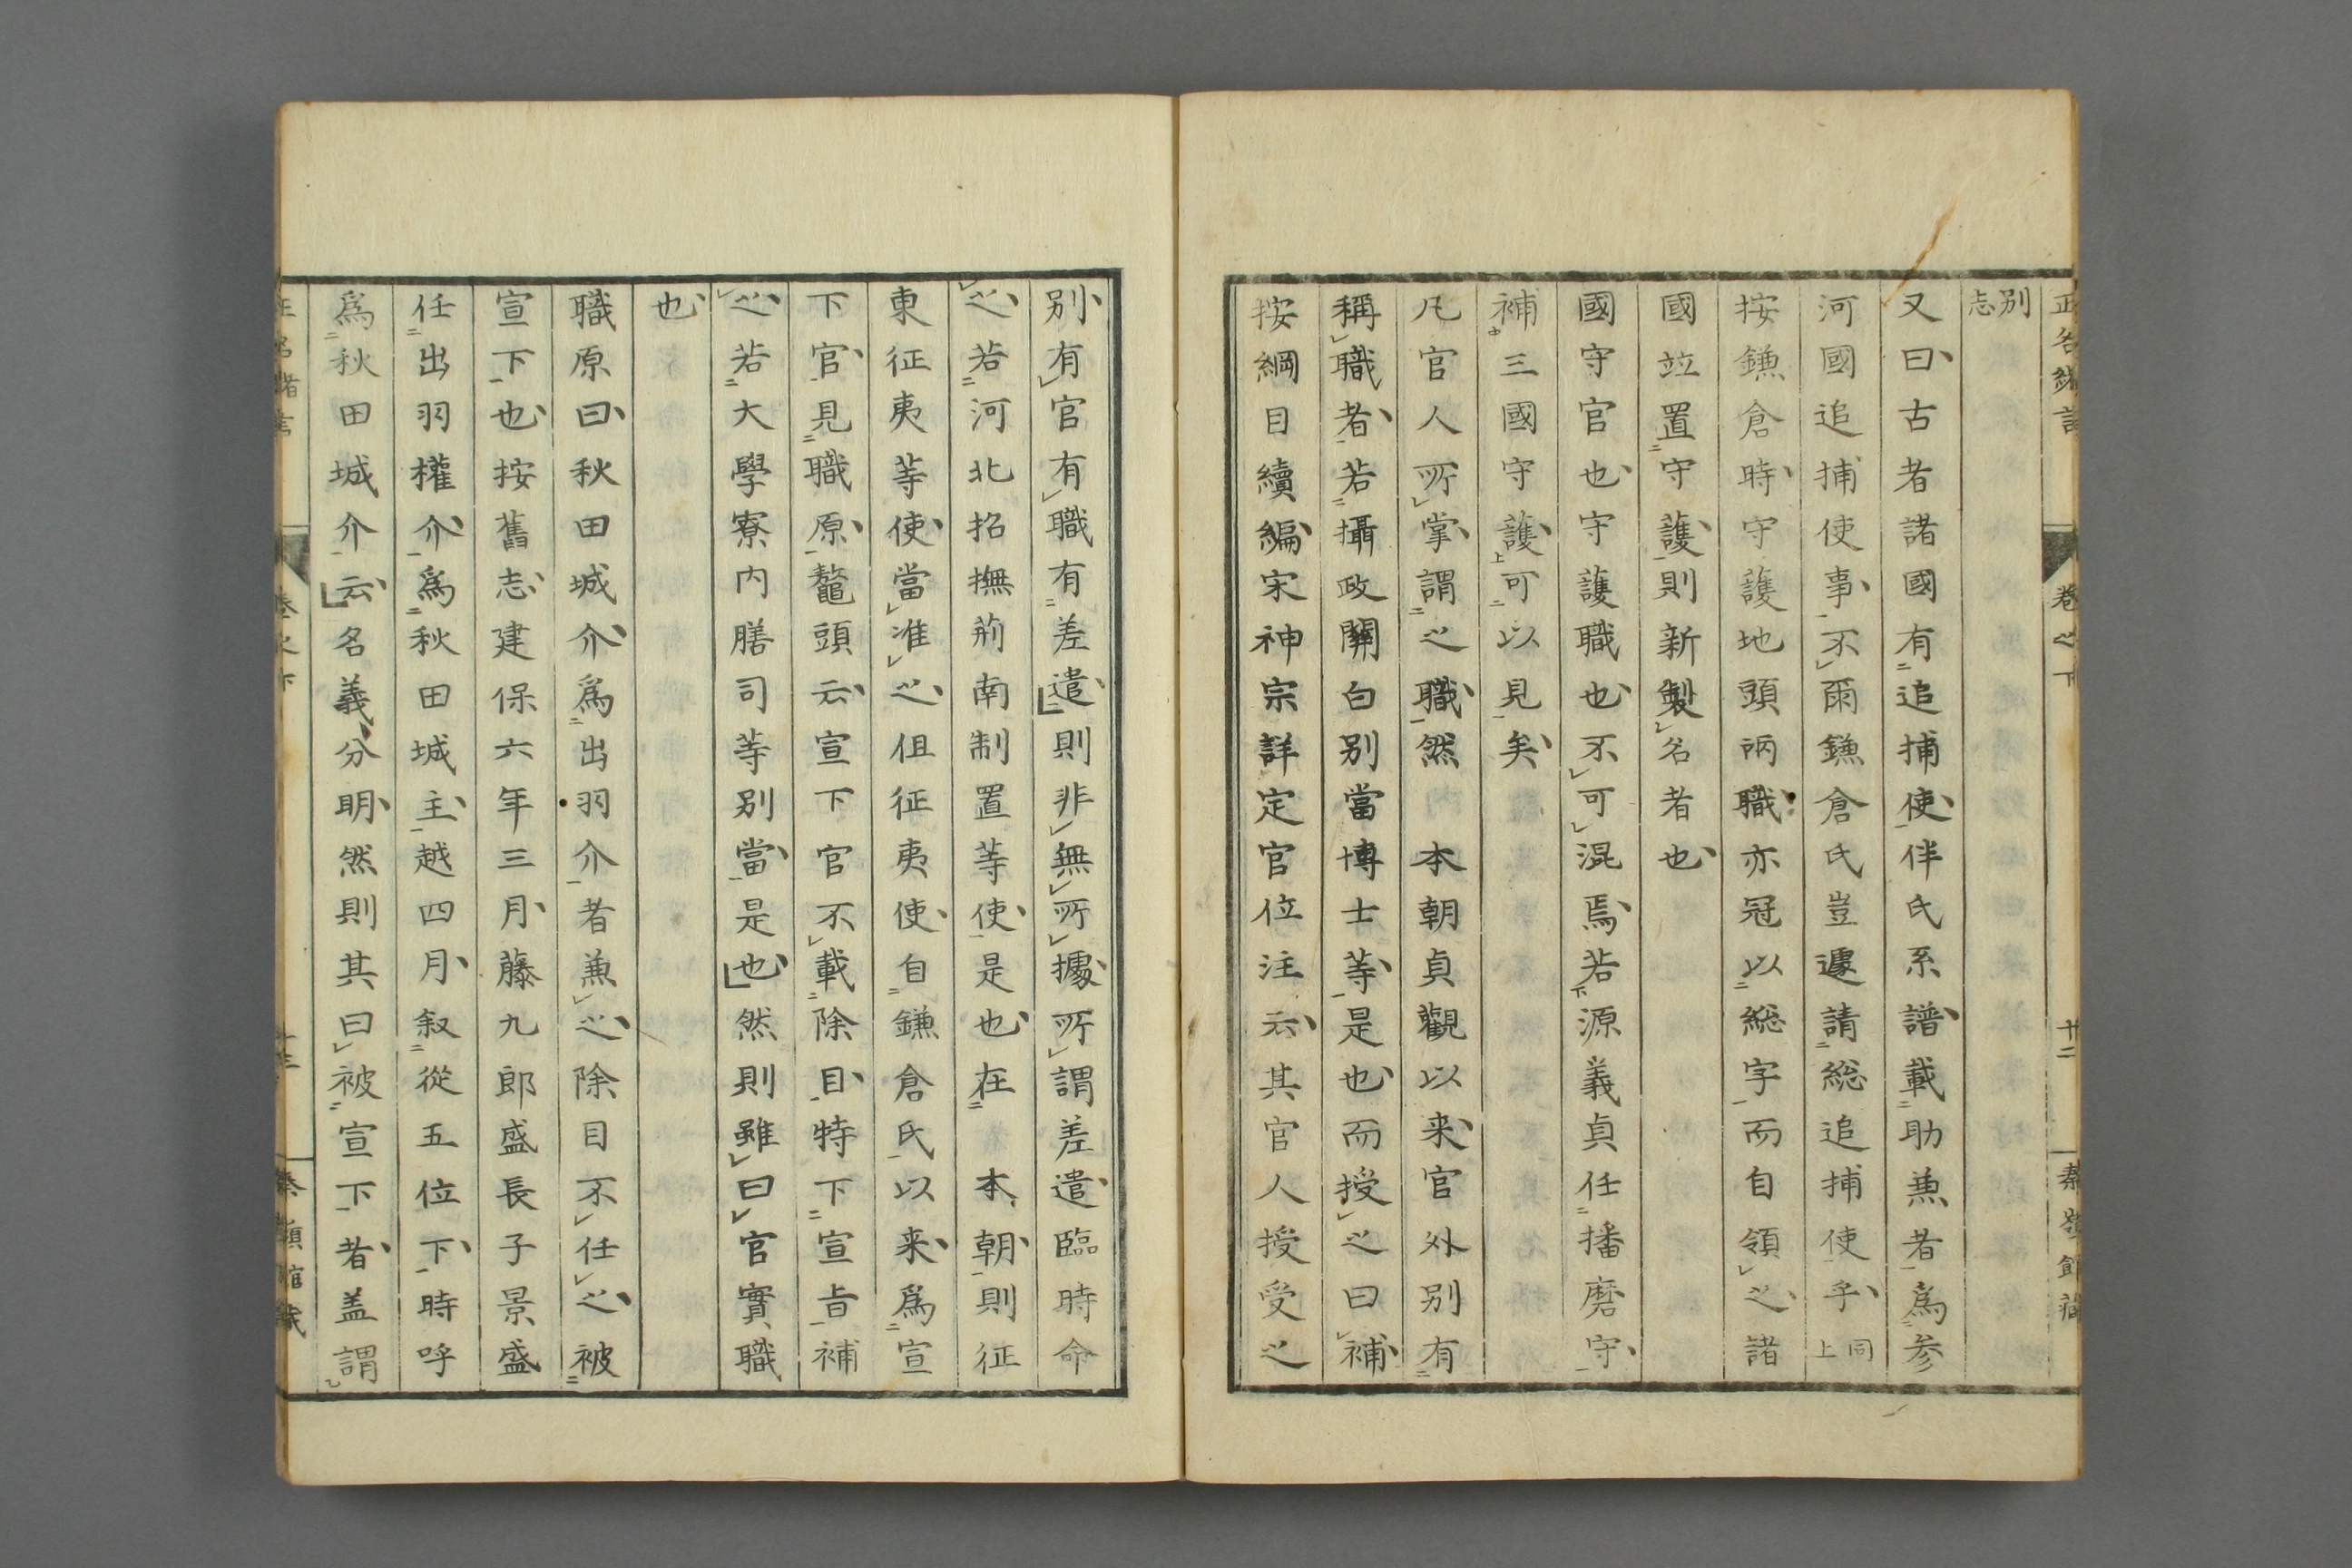 正名緒言 卷之下 十二 秦嶺館藏
别志
又曰古者諸國有追捕使伴氏系譜載助兼者爲参
河國追捕使事不爾鎌倉氏豈遽請総追捕使乎同上
按鎌倉時守護地頭両職亦冠以総字而自領之諸
國竝置守護則新製名者也
國守官也守護職也不可混焉若源義貞任播磨守
補三國守護可以見矣
凡官人所掌謂之職然本朝貞觀以来官外别有
稱職者若攝政關白别當博士等是也而授之曰補
按綱目續編宋神宗詳定官位注云其官人授受之
别有官有職有差遣則非無所據所謂差遣臨時命
之若河北招撫荊南制置等使是也在本朝則征
東征夷等使當准之但征夷使自鎌倉氏以来爲宣
下官見職原鼇頭云宣下官不載除目特下宣旨補
之若大學寮内膳司等别當是也然則雖曰官實職
也
職原曰秋田城介爲出羽介者兼之除目不任之被
宣下也按舊志建保六年三月藤九郎盛長子景盛
任出羽權介爲秋田城主越四月叙從五位下時呼
爲秋田城介云名義分明然則其曰被宣下者盖謂